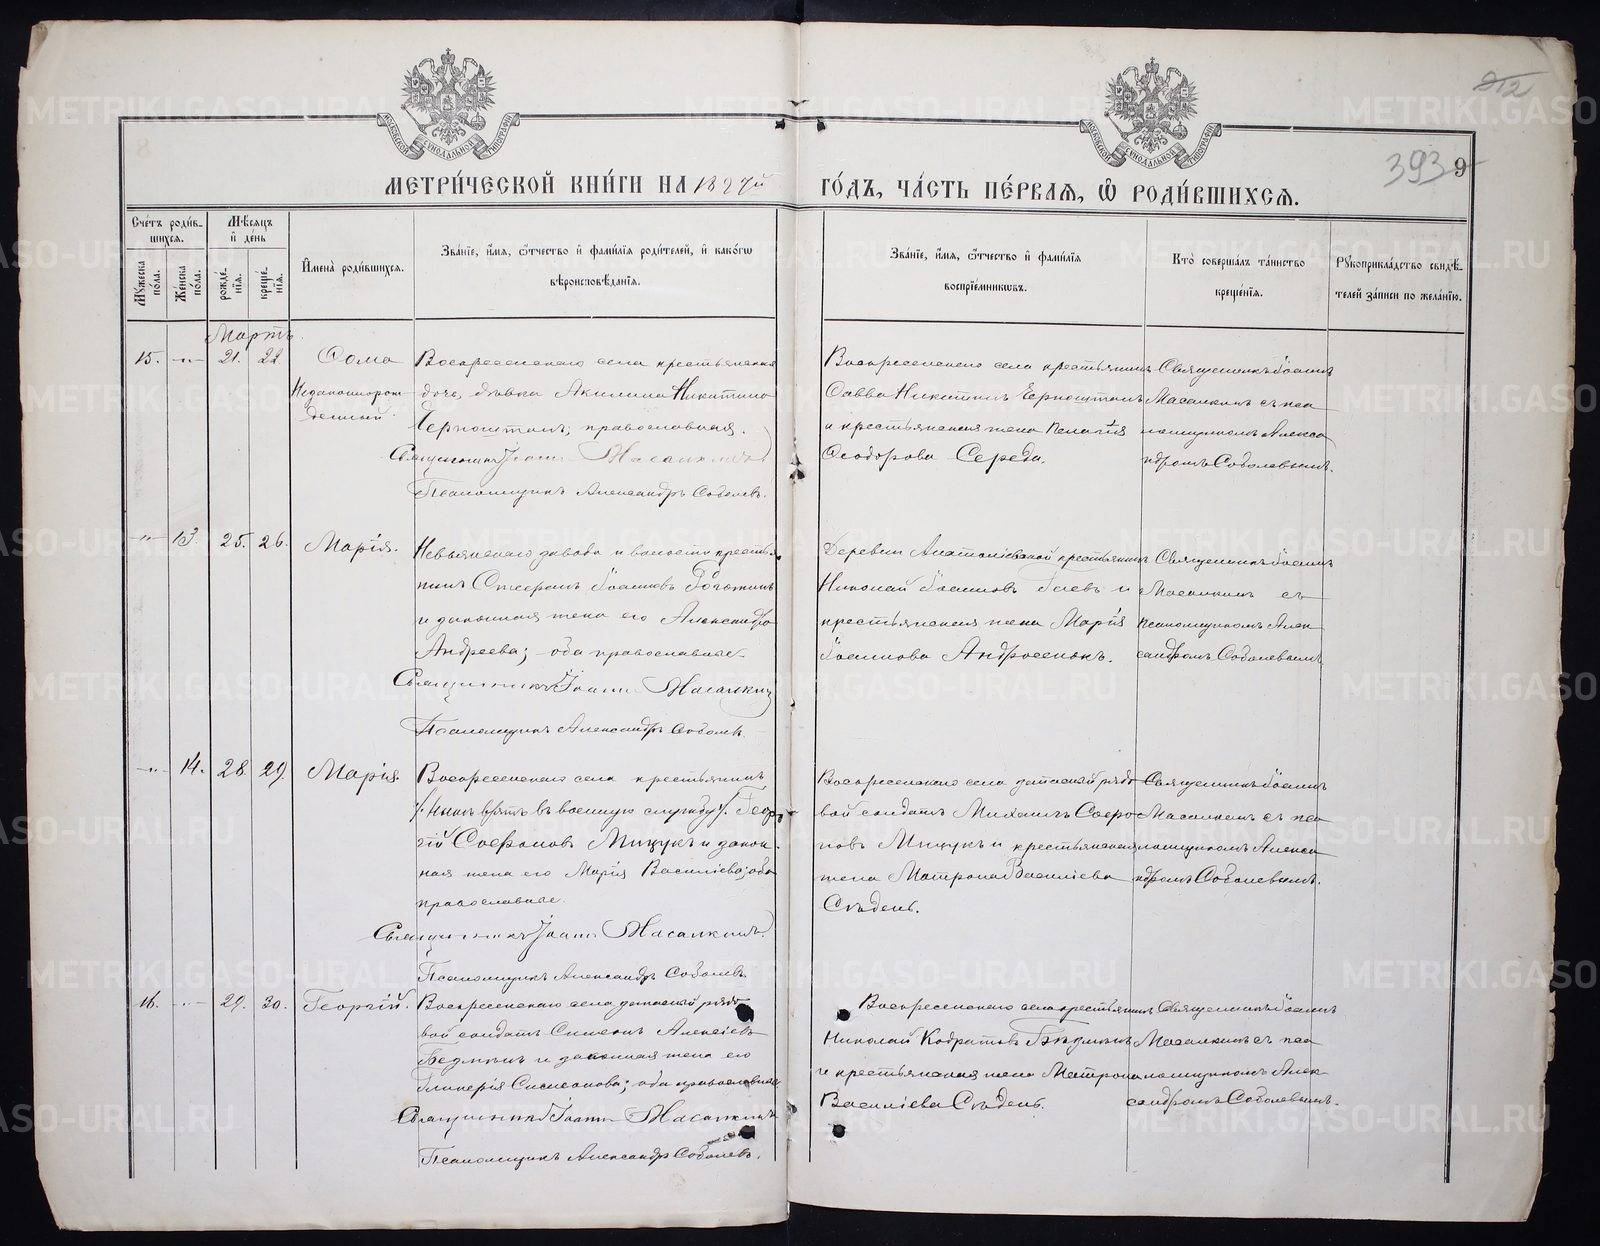 МЕТРИ́ЧЕСКОЙ КНИ́ГИ НА 1897й ГО́ДЪ, ЧА́СТЬ ПЕ́РВАЯ, Ѡ РОДИ́ВШИХСЯ.
393 9
МОСКОВСКОЙ СѴНОДАЛЬНОЙ ТИПОГРАФІИ
МОСКОВСКОЙ СѴНОДАЛЬНОЙ ТИПОГРАФІИ
Сче́тъ роди́в-
шихся.
Мѣ́сяцъ
и́ де́нь
Мꙋ́жеска по́ла.
Же́нска по́ла.
рожде́-
нїя.
креще́-
нїя.
И҆мена̀ роди́вшихся.
Зва́нїе, и҆́мя, ѻ҆́тчество и҆ фами́лїя роди́телей, и҆ како́гѡ
вѣроисповѣ́данїя.
Зва́нїе, и҆́мя, ѻ҆́тчество и҆ фами́лїя
воспрїе́мникѡвъ.
Кто̀ соверша́лъ та́инство
креще́нїя.
Рꙋкоприкла́дство свидѣ́-
телей за́писи по жела́нїю.
Мартъ.
15. -"- 21. 22 Фома
Незаконнорож-
денный.
Воскресенскаго села крестьянская
дочь, дѣвка Акилина Никитина
православная.
Священникъ Іоаннъ Масалкинъ
Псаломщикъ Александръ Соболевъ.
Воскресенскаго села крестьянинъ
Савва Никитинъ
и крестьянская жена Пелагія
Ѳеодорова Середа.
Священникъ Іоаннъ
Масалкинъ съ пса
ломщикомъ Алекса
ндромъ Соболевымъ.
-"- 13. 25. 26. Марія.
завода и волости крестья
нинъ Іоанновъ
и законная жена его Александра
Андреева; оба православные.
Священникъ Іоаннъ Масалкинъ
Псаломщикъ Александръ Соболевъ.
Деревни крестьянинъ
Николай Іоанновъ и
крестьянская жена Марія
Іоаннова
Священникъ Іоаннъ
Масалкинъ съ
псаломщикомъ Алек
сандромъ Соболевымъ.
-"- 14. 28. 29. Марія.
Воскресенскаго села крестьянинъ
/: нынѣ взятъ въ военную службу :/ Геор-
гій Софроновъ Мицукъ и закон-
ная жена его Марія Василіева; оба
православные.
Священникъ Іоаннъ Масалкинъ.
Псаломщикъ Александръ Соболевъ.
Воскресенскаго села запасной рядо
вой солдатъ Михаилъ Софро
новъ Мицукъ и крестьянская
жена Матрона Василіева
Священникъ Іоаннъ
Масалкинъ съ пса
ломщикомъ Алекса
ндромъ Соболевымъ.
16. -"- 29. 30. Георгій.
Воскресенскаго села запасной рядо
вой солдатъ Симеонъ Алексіевъ
и законная жена его
Гликерія Симеонова; оба православные
Священникъ Іоаннъ Масалкинъ
Псаломщикъ Александръ Соболевъ.
Воскресенскаго села крестьянинъ
Николай Кодратовъ
и крестьянская жена Матрона
Василіева
Священникъ Іоаннъ
Масалкинъ съ пса
ломщикомъ Алек
сандромъ Соболевымъ.
METRIKI.GASO-URAL.RU